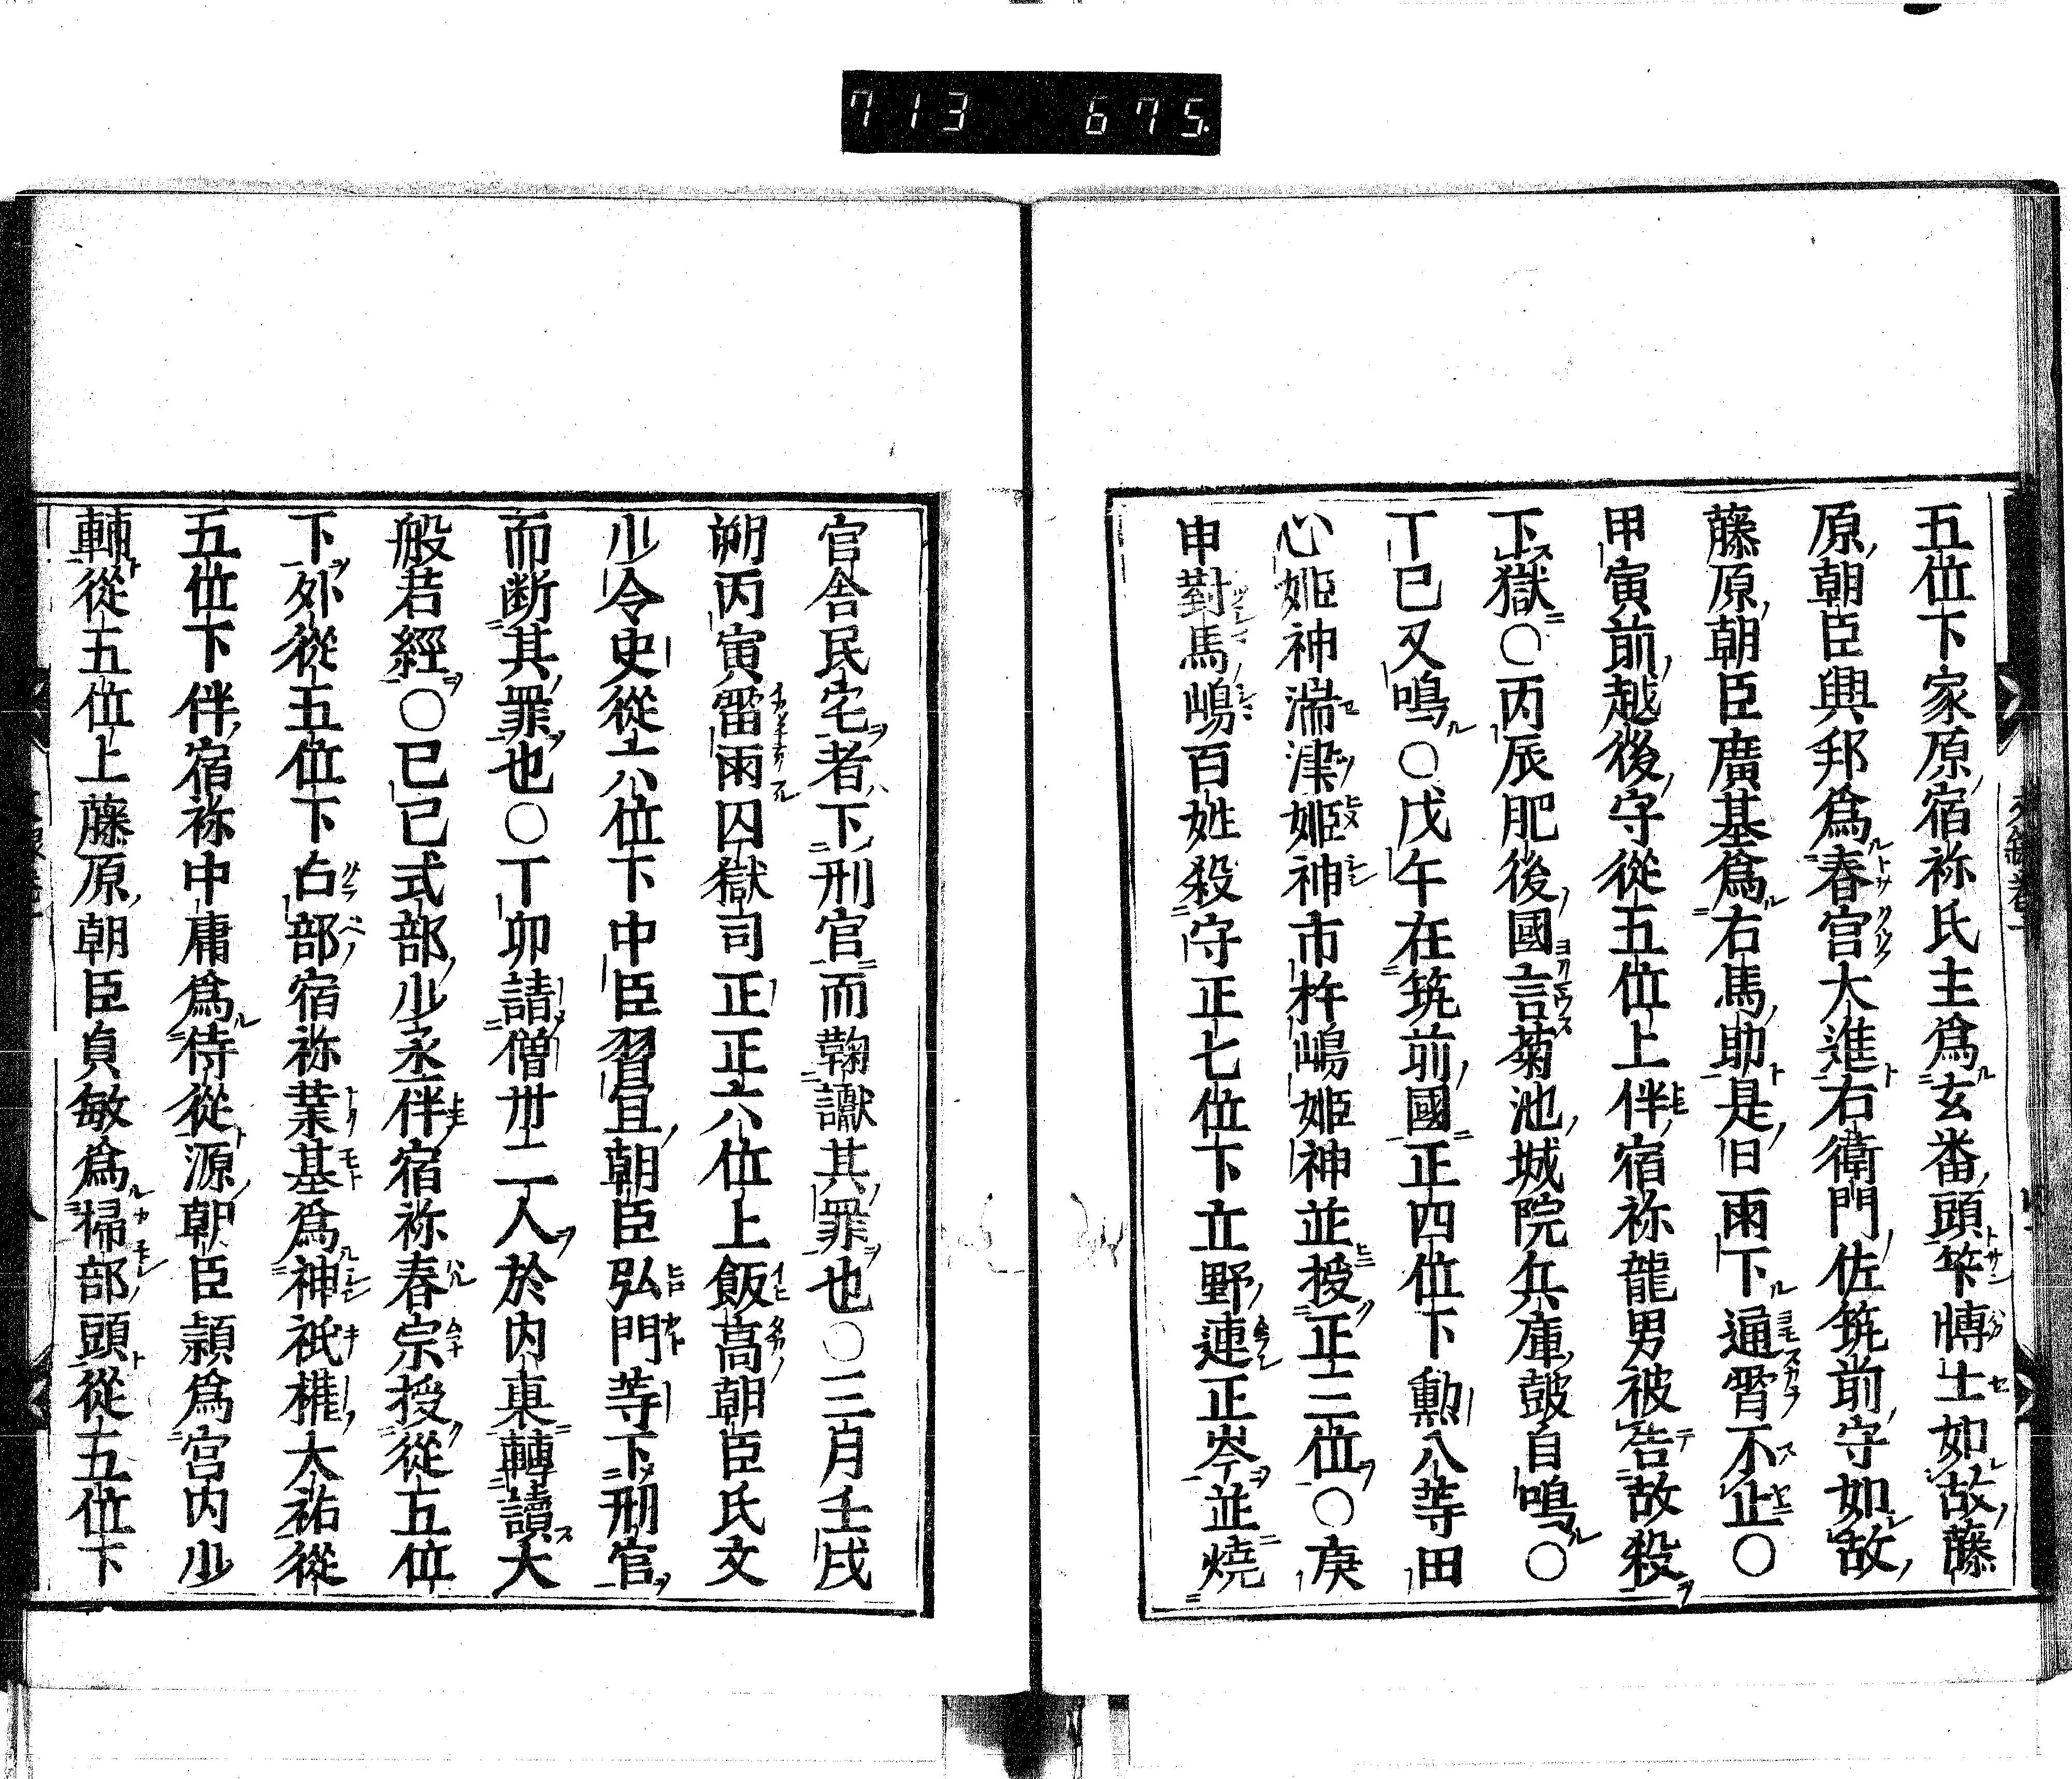 713 675.
五位下家原宿祢氏主爲玄番頭笇博士如故藤
原朝臣興邦爲春宮大進右衛門佐筑前守如故
藤原朝臣廣基爲右馬助是日雨下通霄不止〇
甲寅前越後守從五位上伴宿祢龍男被告故殺
下獄〇丙辰肥後國言菊池城院兵庫鼓自鳴〇
丁巳又鳴〇戊午在筑前國正四位下勳八等田
心姫神湍津姫神市杵嶋姫神並授正三位〇庚
申對馬嶋百姓殺守正七位下立野連正岑並燒
官舍民宅者下刑官而鞠讞其罪也〇三月壬戌
朔丙寅雷雨囚獄司正正六位上飯高朝臣氏文
少令史從六位下中臣習宜朝臣弘門等下刑官
而断其罪也〇丁卯請僧卅二人於内裏轉讀大
般若經〇己巳式部少丞伴宿祢春宗授從五位
下外從五位下占部宿祢業基爲神祇權大祐從
五位下伴宿祢中庸爲侍從源朝臣頴爲宮内少
輔從五位上藤原朝臣貞敏爲掃部頭從五位下